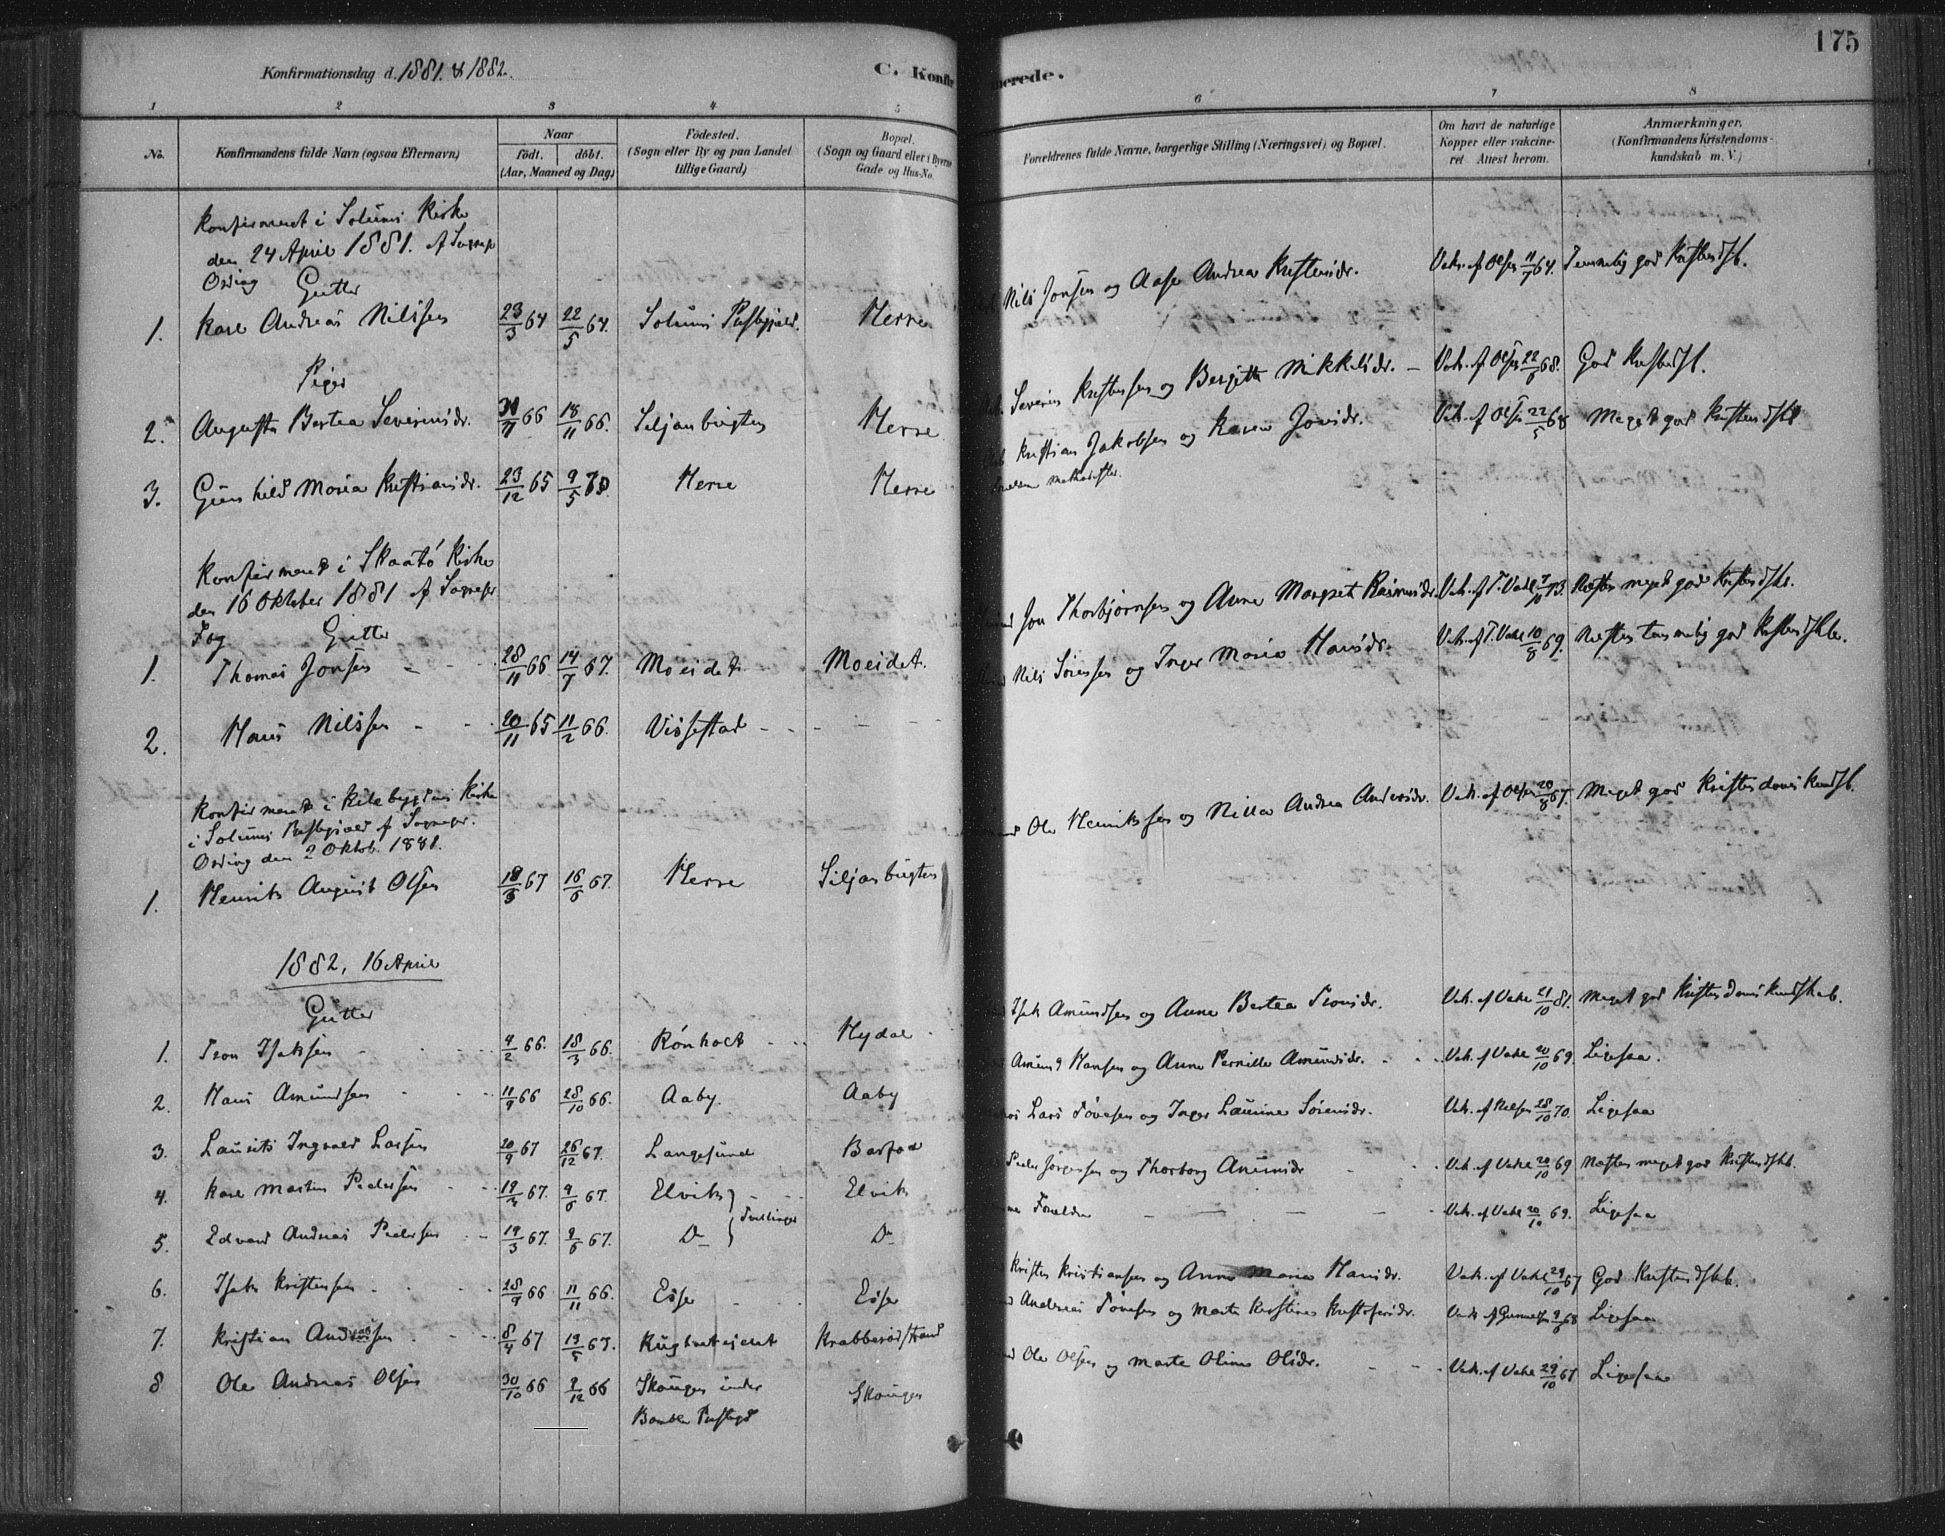 175
Konfirmationsdag d. 1881. & 1882.
C. Konfir merede.
1 2 3 4 5 6 7 8
No.
Konfirmandens fulde Navn (ogsaa Efternavn)
Naar
födt. döbt.
(Aar, Maaned og Dag)
Födested.
(Sogn eller By og paa Landet tillige Gaard)
Bopæl.
(Sogn og Gaard eller i Byerne Gade og Hus-No.
Forældrenes fulde Navne, borgerlige Stilling (Næringsvei) og Bopæl.
Om havt de naturlige Kopper eller vakcineret Attest herom.
Anmærkninger.
(Konfirmandens Kristendomskundskab m. V.)
Konfirmeret i Solums Kirke
den 24 April 1881. af Sognepr
Ording Gutter
1. Karl Andreas Nilssen 23/3 64 22/5 64. Solums Præstegjæld. Herre Nils Jonsen og Aase Andrea Kristensdr. Vak. af Olsen 11/7 64. Temmelig god Kristendsk.
Piger
2. Augusta Bertea Severinsdr. 66 18/11 66. Siljanbugten Herre Severin Kristensen og Bergitte Mikkelsdr. Vak. af Olsen 22/6 68. God Kristendsk.
3. Gunhild Maria Kristiansdr. 23/12 65 9/5 Herre Herre Kristian Jakobsen og Karen Jonsdr. Vak. af Olsen 22/5 68 Meget god Kristendskb
Konfirmeret i Skaatö Kirke
den 16 Oktober 1881 af Sognepr
Fog Gutter
1. Thomas Jonsen 28/11 66 14/7 67. Moeidet Moeidet. Jon Thorbjørnsen og Anne Margret Rasmusdr. Vak. af T. Vahl 7/10 73. Næsten meget god Kristendskb.
2. Hans Nilssen 20/11 65 11/2 66. Vissestad Nils Sørensen og Inger Maria Hansdr. Vak. af T. Vahl 10/8 69. Næsten temmelig god Kristendskb.
Konfirmeret i Kilebygdens Kirke
i Solums Præstegjæld af Sognepr.
Ording den 2 Oktob. 1881.
1. Henrik August Olsen 18/3 67 16/6 67. Herre Siljanbugten Ole Henriksen og Nilla Andrea Andersdr. Vak. af Olsen 20/8 67. Meget god Kristendomskundsk.
1882, 16 April
Gutter
1. Tron Isaksen 4/2 66. 18/3 66. Rönholt Hydal Isak Amundsen og Anne Bertea Tronsdr. Vak. af Vahl 21/10 81. Meget god Kristendomskundskab.
2. Hans Amundsen 11/9 66 28/10 66. Aaby. Aaby Amund Hansen og Anne Pernille Amundsdr. Vak. af Vahl 20/10 69. Ligesaa.
3. Lauritz Ingvald Larsen 20/9 67 26/12 67. Langesund Lars Tovesen og Inger Laurine Sörensdr. Vak. af Nelsen 28/10 70. Ligesaa
4. Karl Martin Pedersen 19/3 67. 9/6 67. Elvik Elvik Peder Jörgensen og Thorborg Vak. af Vahl 20/10 69 Næsten meget god Kristendskb.
Tvillinger
5. Edvard Andreas Pedersen 19/3 67. 9/6 67. Do Do Forældre Vak. af Vahl 20/10 69. Ligesaa
6. Isak Kristensen 28/9 66 11/11 66. Kristen Kristiansen og Anne Maria Hansdr. Vak. af Vahl 29/10 67 God Kristendskb.
7. Kristian Andreassen 8/4 67 19/5 67. Krabberödstrand Andreas Tovesen og Marte Kirstine Kristofersdr. Ligesaa
8 Ole Andreas Olsen 30/10 66 9/12 66 Skougen under Skougen Ole Olsen og Marte Oline Olsdr. Vak. af Vahl 29/10 67 Ligesaa
Bamble Præstegd